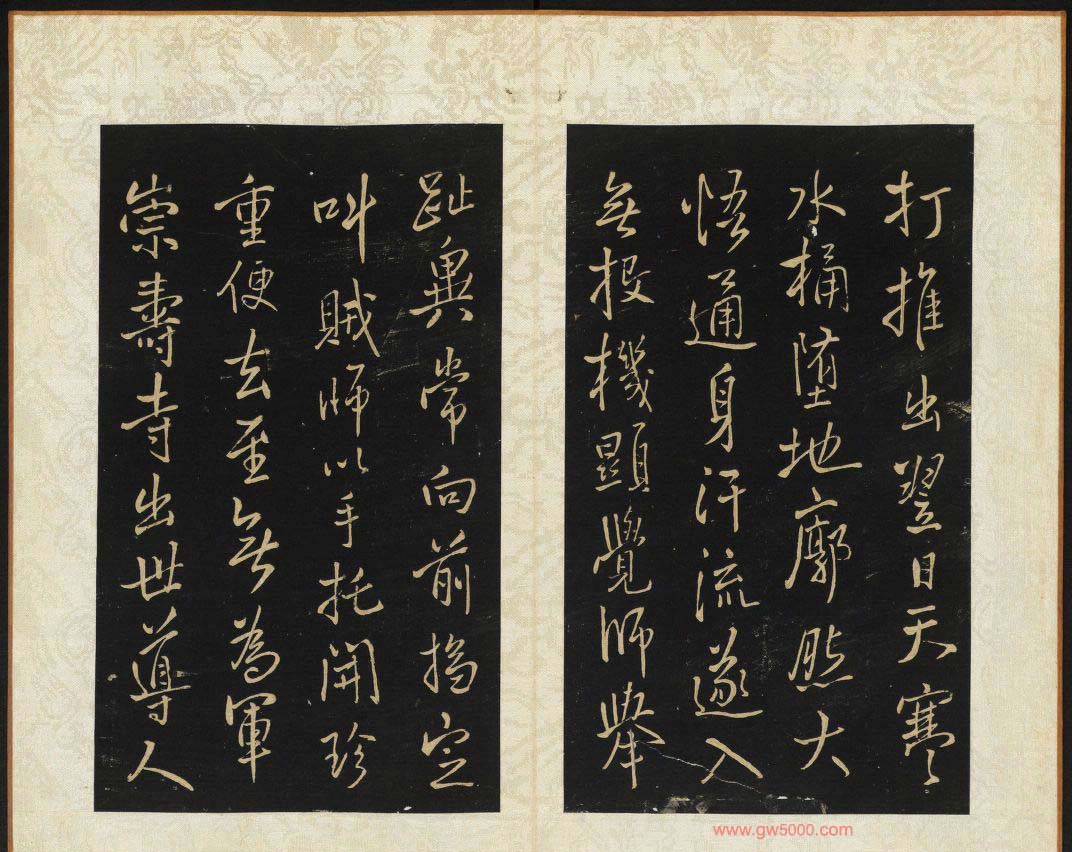 打推出翌日天寒
水桶堕地廓然大
悟通身汗流遂入
無投機顕覺師舉
趾異常向前搊定
叫賊師以手托開珍
重便去至無為軍
崇壽寺出世導人
www.gw5000.com